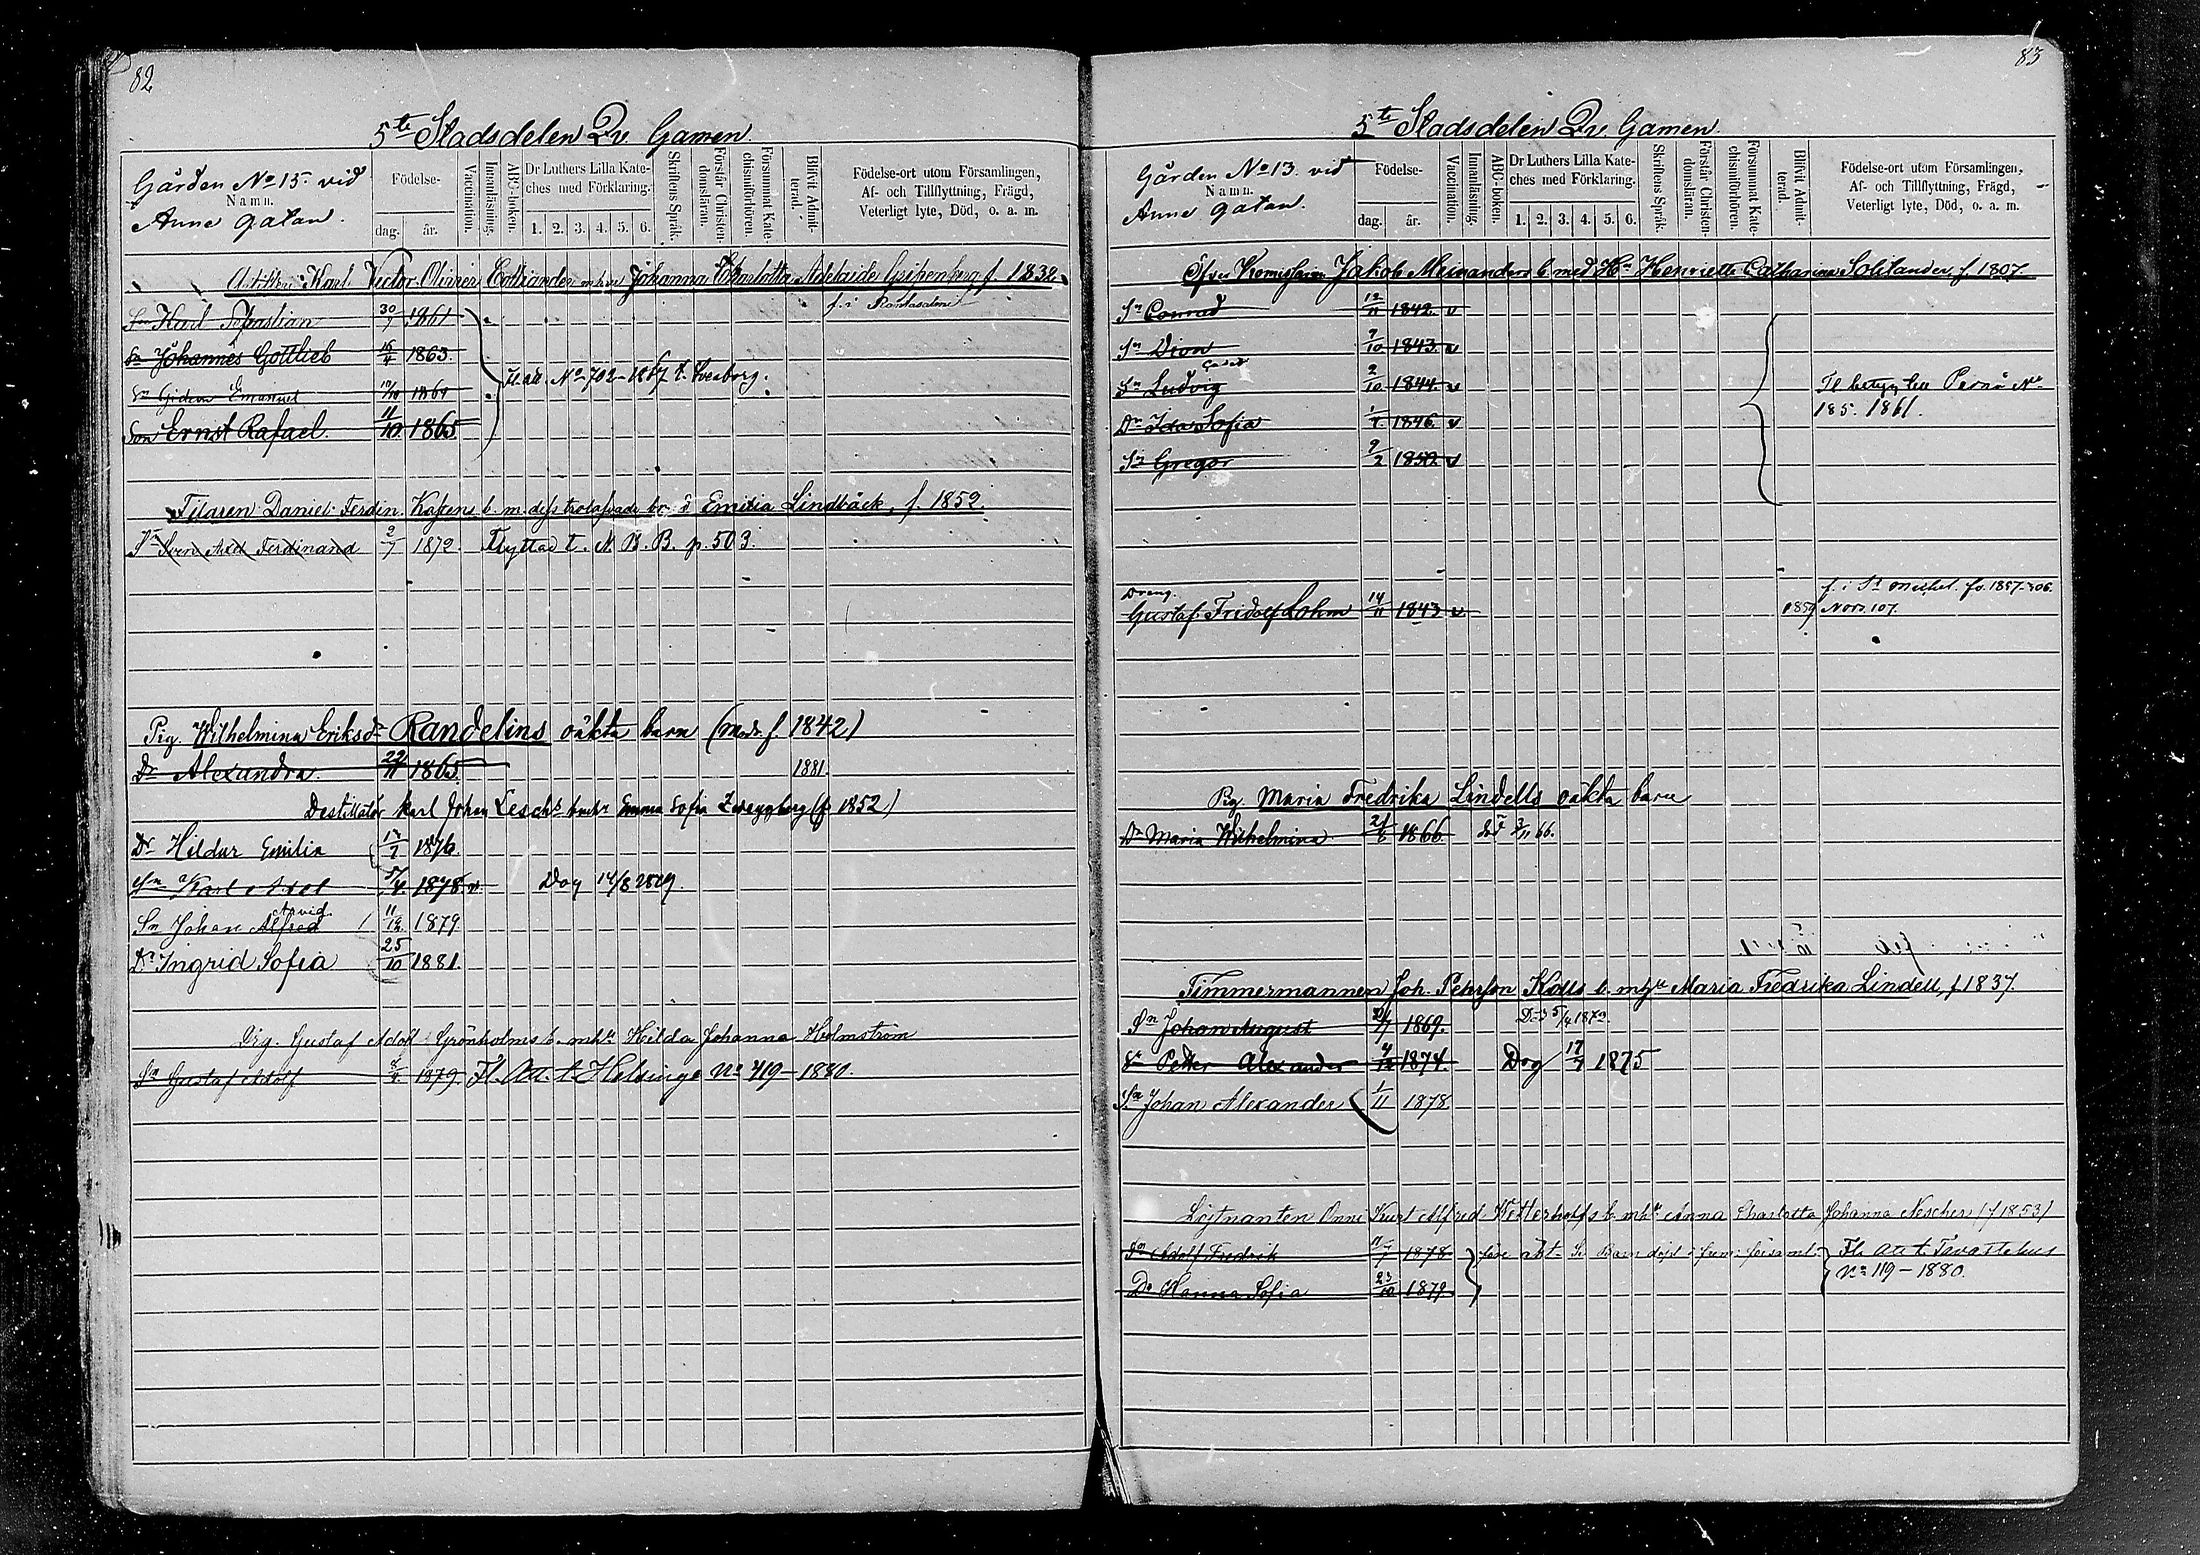 82
5te Stadsdelen Qv. Gamen.
Gården No 15. vid
Namn.
Anne gatan.
Födelse-
dag. år.
Vaccination.
Innanläsning.
ABC-boken.
Dr Luthers Lilla Kate-
ches med Förklaring.
1. 2. 3. 4. 5. 6.
Skriftens Språk.
Förstår Christen-
domsläran.
Försummat Kate-
chismiförhören.
Blifvit Admit-
terad.
Födelse-ort utom Församlingen,
Af- och Tillflyttning, Frägd,
Veterligt lyte, Död, o. a. m.
Karl Victor Olivier Collianders m. h. Johanna Charlotta Adelaide Gripenberg f. 1832.
f. i Rantasalmi
Sn Karl Sebastian 30/7 1861
Sn Johannes Gottlieb 15/4 1863.
Sn Gideon Emanuel 1864
Fl. att. No 702-1867 t. Sveaborg.
Son Ernst Rafael. 11/10 1865
Filaren Daniel Ferdin. b. m. Emilia Lindbäck, f. 1852.
Sn Sven Axel Ferdinand 2/7 1872. Flyttad t. N. B. B. p. 503.
Pig. Wilhelmina Eriksdr Randelins oäkta barn (Modr f. 1842)
Dr Alexandra. 22/11 1865. 1881.
Destillatör Karl Johan Leschs b. mhu Emma Sofia Zweygberg (f 1852)
Dr Hildur Emilia 17/7 1876.
Sn Karl Axel 5/4 1878. v. Dog 14/8 1879.
Arvid
Sn Johan Alfred 11/12 1879
Dr Ingrid Sofia 25/10 1881.
Drg. Gustaf Adolf Grönholms b. mhu Hilda Johanna Holmström
Sn Gustaf Adolf 1879. Fl. Att. t. Helsinge No 719-1880
83
5te Stadsdelen Qv. Gamen.
Gården No 13. vid
Namn.
Anne gatan.
Födelse-
dag. år.
Vaccination.
Innanläsning.
ABC-boken.
Dr Luthers Lilla Kate-
ches med Förklaring.
1. 2. 3. 4. 5. 6.
Skriftens Språk.
Förstår Christen-
domsläran.
Försummat Kate-
chismiförhören.
Blifvit Admit-
terad.
Födelse-ort utom Församlingen,
Af- och Tillflyttning, Frägd,
Veterligt lyte, Död, o. a. m.
Jakob Meinanders b. med Hu Henriette Catharina Solitander, f. 1807.
Sn Conrad 12/11 1842. v
Sn Dion 7/10 1843. v
Sn Ludvig 2/10 1844. v
Fl. betyg till Pernå No
185. 1861.
Dr Ida Sofia 1846. v
Sn Gregor 9/2 1850. v
Dreng.
Gustaf Fridolf Lohm 14/11 1843 v 1859
f. i St Michel. fo. 1857-306.
Nors. 107.
Pig. Maria Fredrika Lindells oäkta barn
Dr Maria Wilhelmina 21/6 1866. död 3/11 66.
Timmermannen Joh. Pehrson Kolls b. mhu Maria Fredrika Lindell, f. 1837.
Sn Johan August 1869. Död 5/4 1872.
Sn Petter Alexander 4/12 1874. Dog 17/7 1875
Sn Johan Alexander 1/11 1878.
Löjtnanten Onni Kurt Alfred Wetterhoffs b. mhu Anna Charlotta Johanna Nescher (f 1853)
Sn Adolf Fredrik 11/7 1878.
Fl. Att. t. Tavastehus
No 119-1880.
Dr Hanna Sofia 23/10 1879.